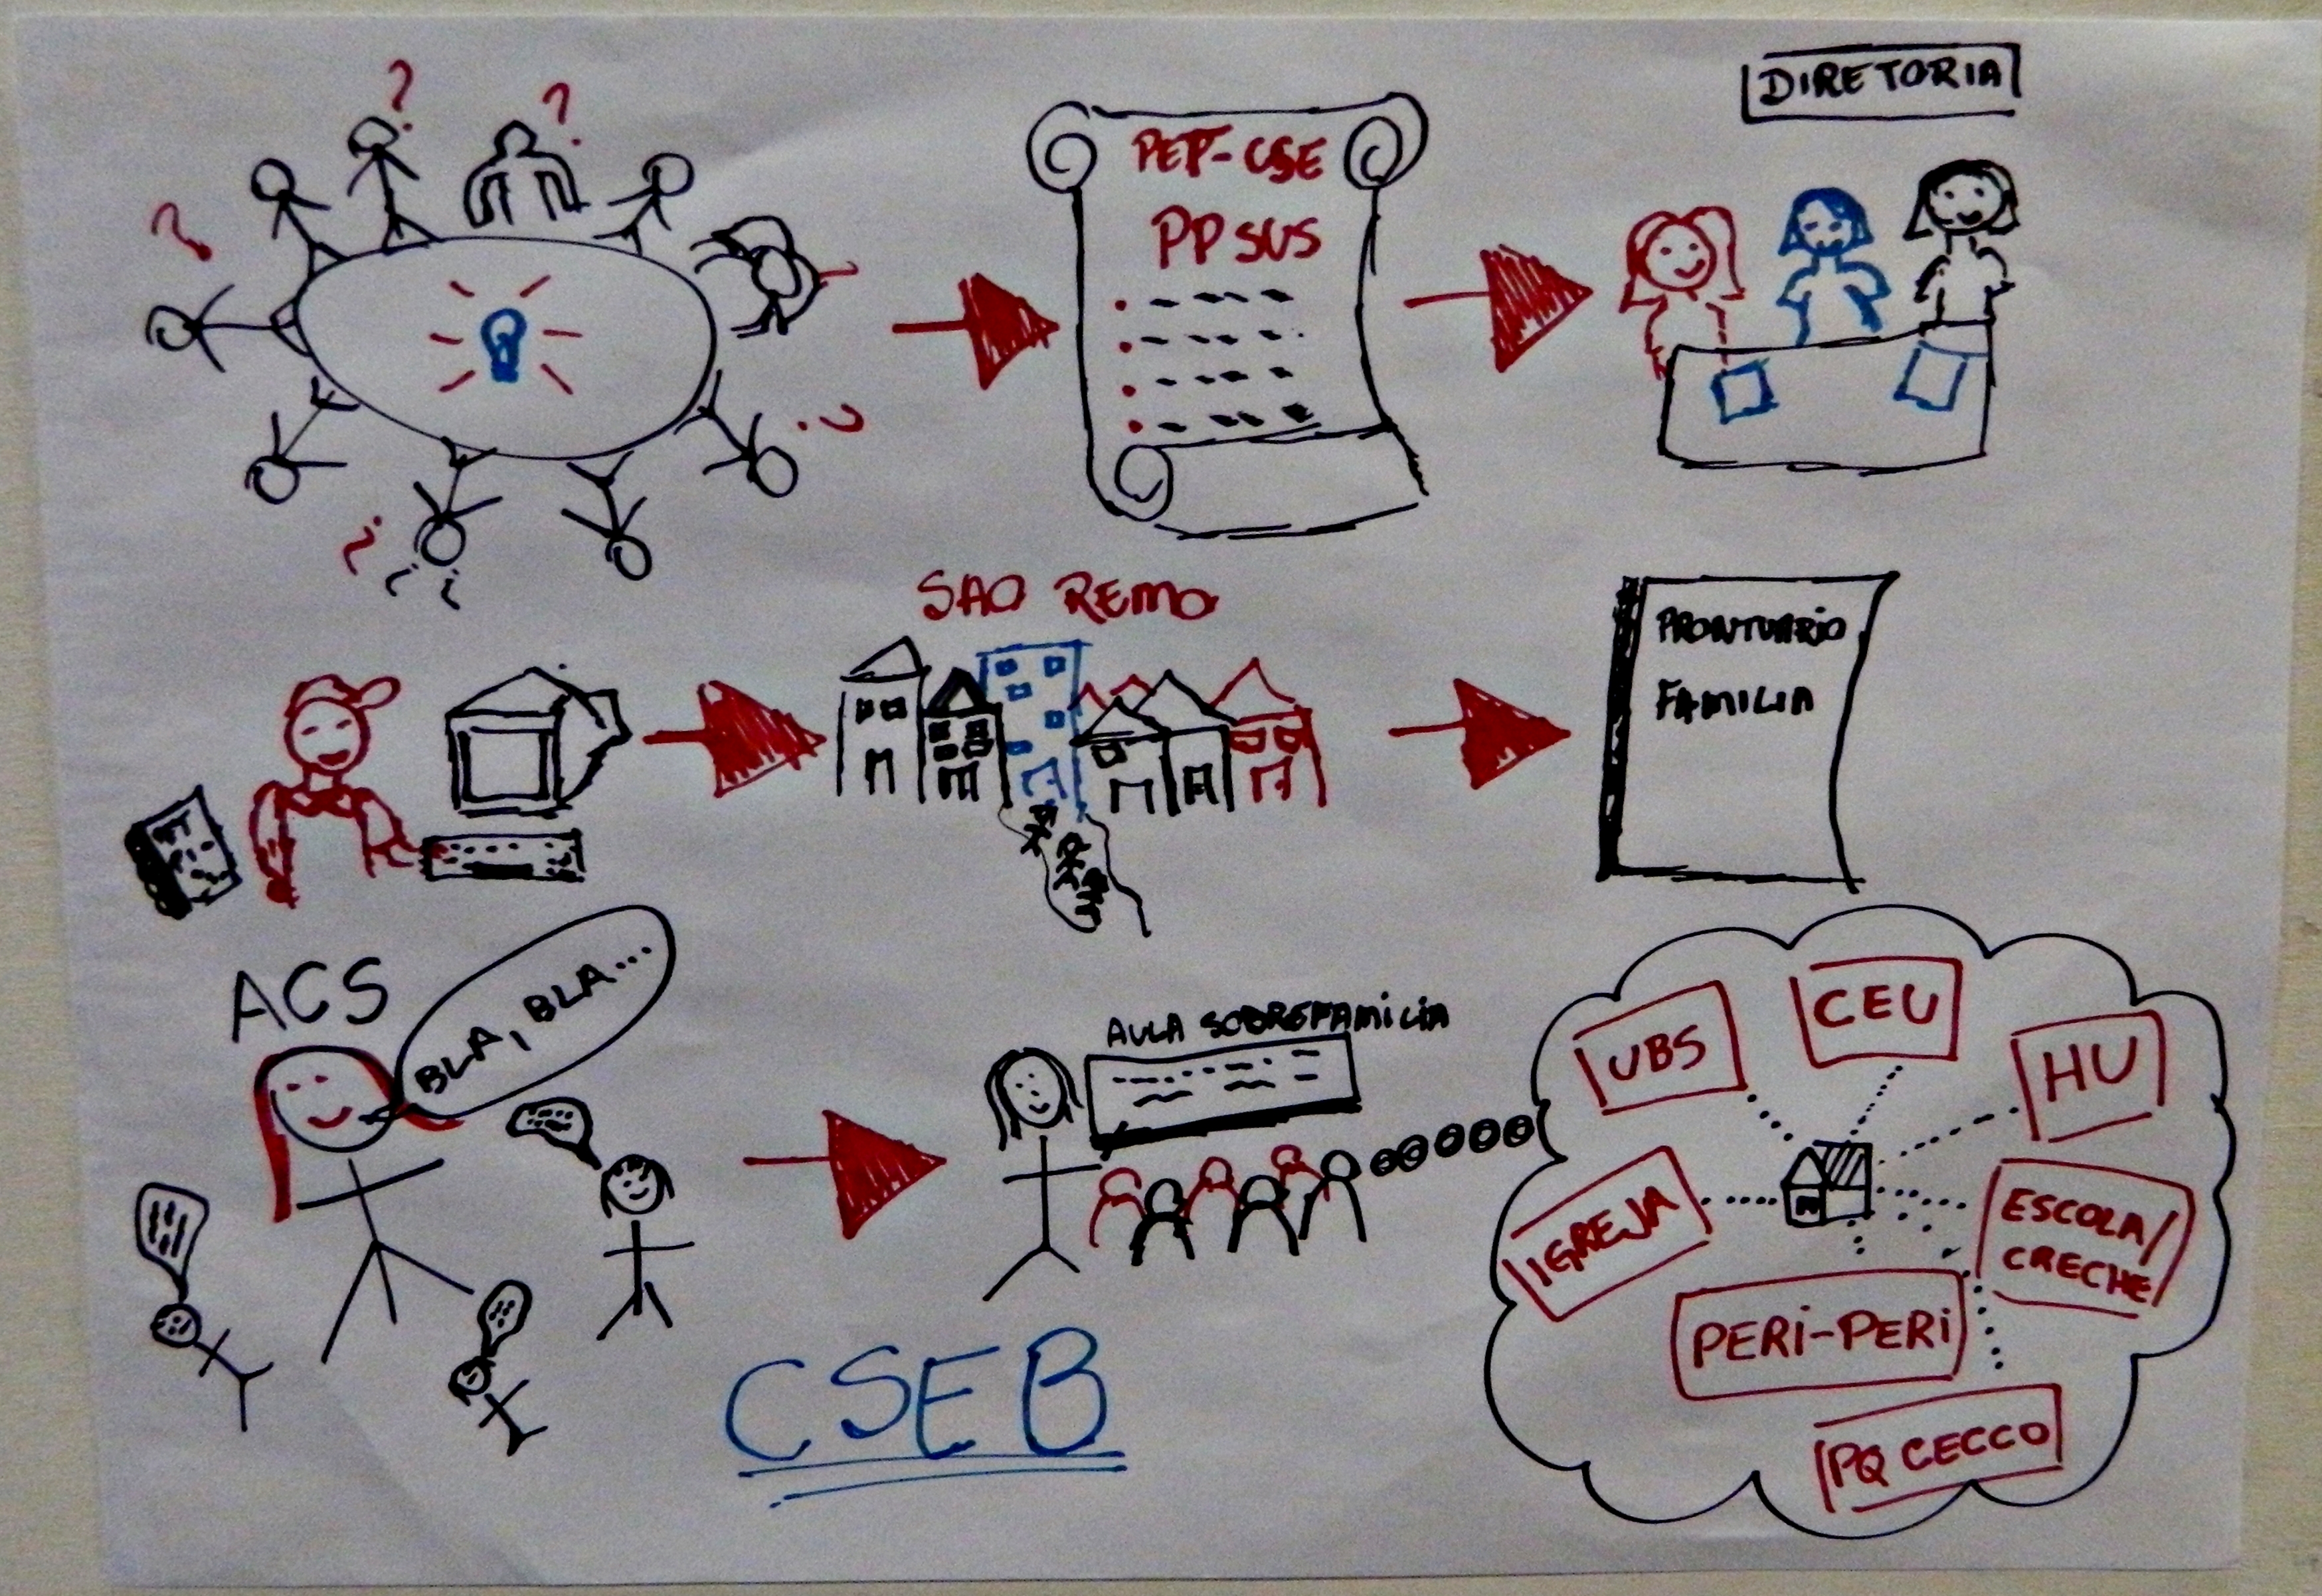 ? ?
DIRETORIA
?
PEP-CSE
PPSUS
?
?
?
SAO REMO
PRONTUARIO
FAMILIA
ACS
BLA, BLA...
AULA SOBRE FAMILIA
UBS
CEU
HU
IGREJA
ESCOLA/
CRECHE
PERI-PERI
PQ CECCO
CSEB